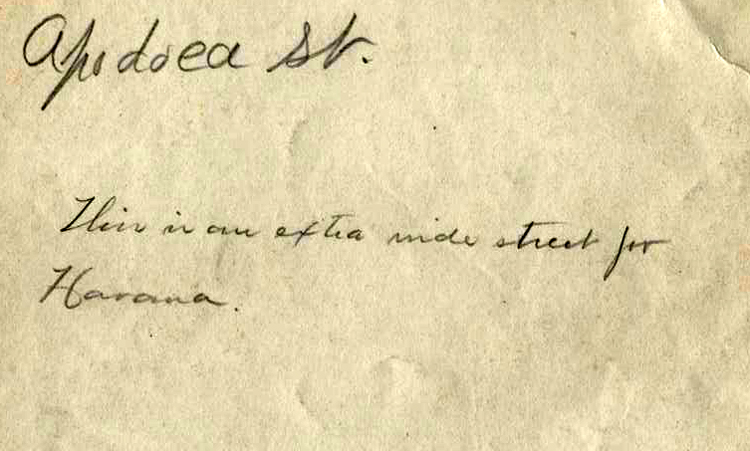 Apodoca St.
This is an extra wide street for
Havana.